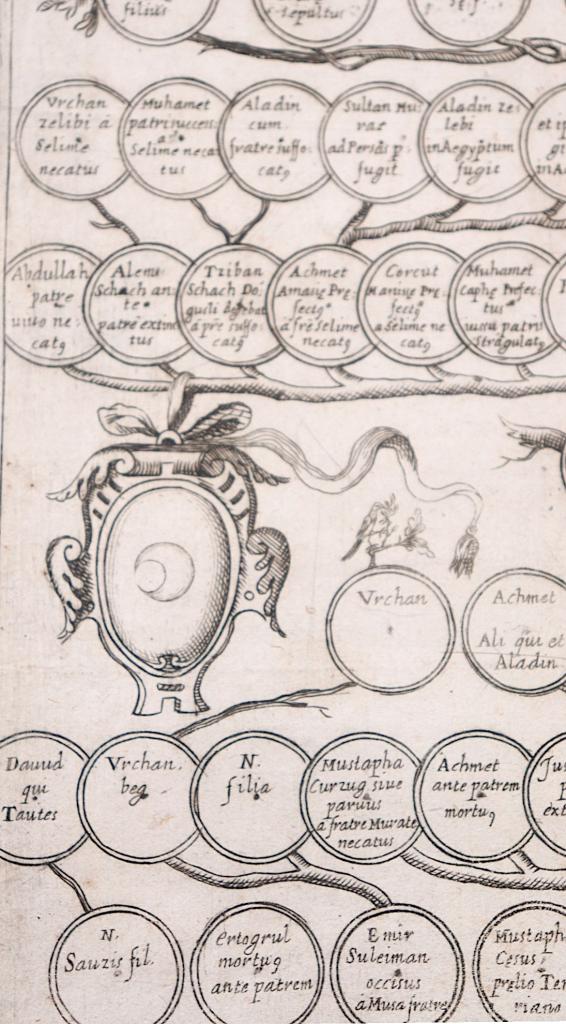 filius
sepultus
Vrchan
zelibi á
Selime
necatus
Muhamet
patri success
Selime neca
tus
Aladin
cum
fratre suffo
catꝯ
Sultan Mu
rat
ad Persas p
fugit
Aladin ze
lebi
in Aegyptum
fugit
et ip
gi
in A
Abdullah
patre
uiuo ne
catꝯ
Alem
Schach an
te
patrē extin
tus
Tziban
Schach Do
catꝯ
Achmet
Amasie Pre
fectꝯ
a frē Selime
necatꝯ
Corcut
Manisie Pre
fectꝯ
a Selime ne
catꝯ
Muhamet
Caphe Prefec
tus
iussu patris
strangulatꝯ
Vrchan
Achmet
Ali qui et
Aladin
Dauud
qui
Tautes
Vrchan
beg
N.
filia
Mustapha
Curzug siue
paruus
á fratre Murate
necatus
Achmet
ante patrem
mortuꝯ
Jus
p
ext
N.
Sauzis fil.
Ertogrul
mortuꝯ
ante patrem
Emir
Suleiman
occisus
á Musa fratre
Mustaph
Cesus
prelio Tem
riano